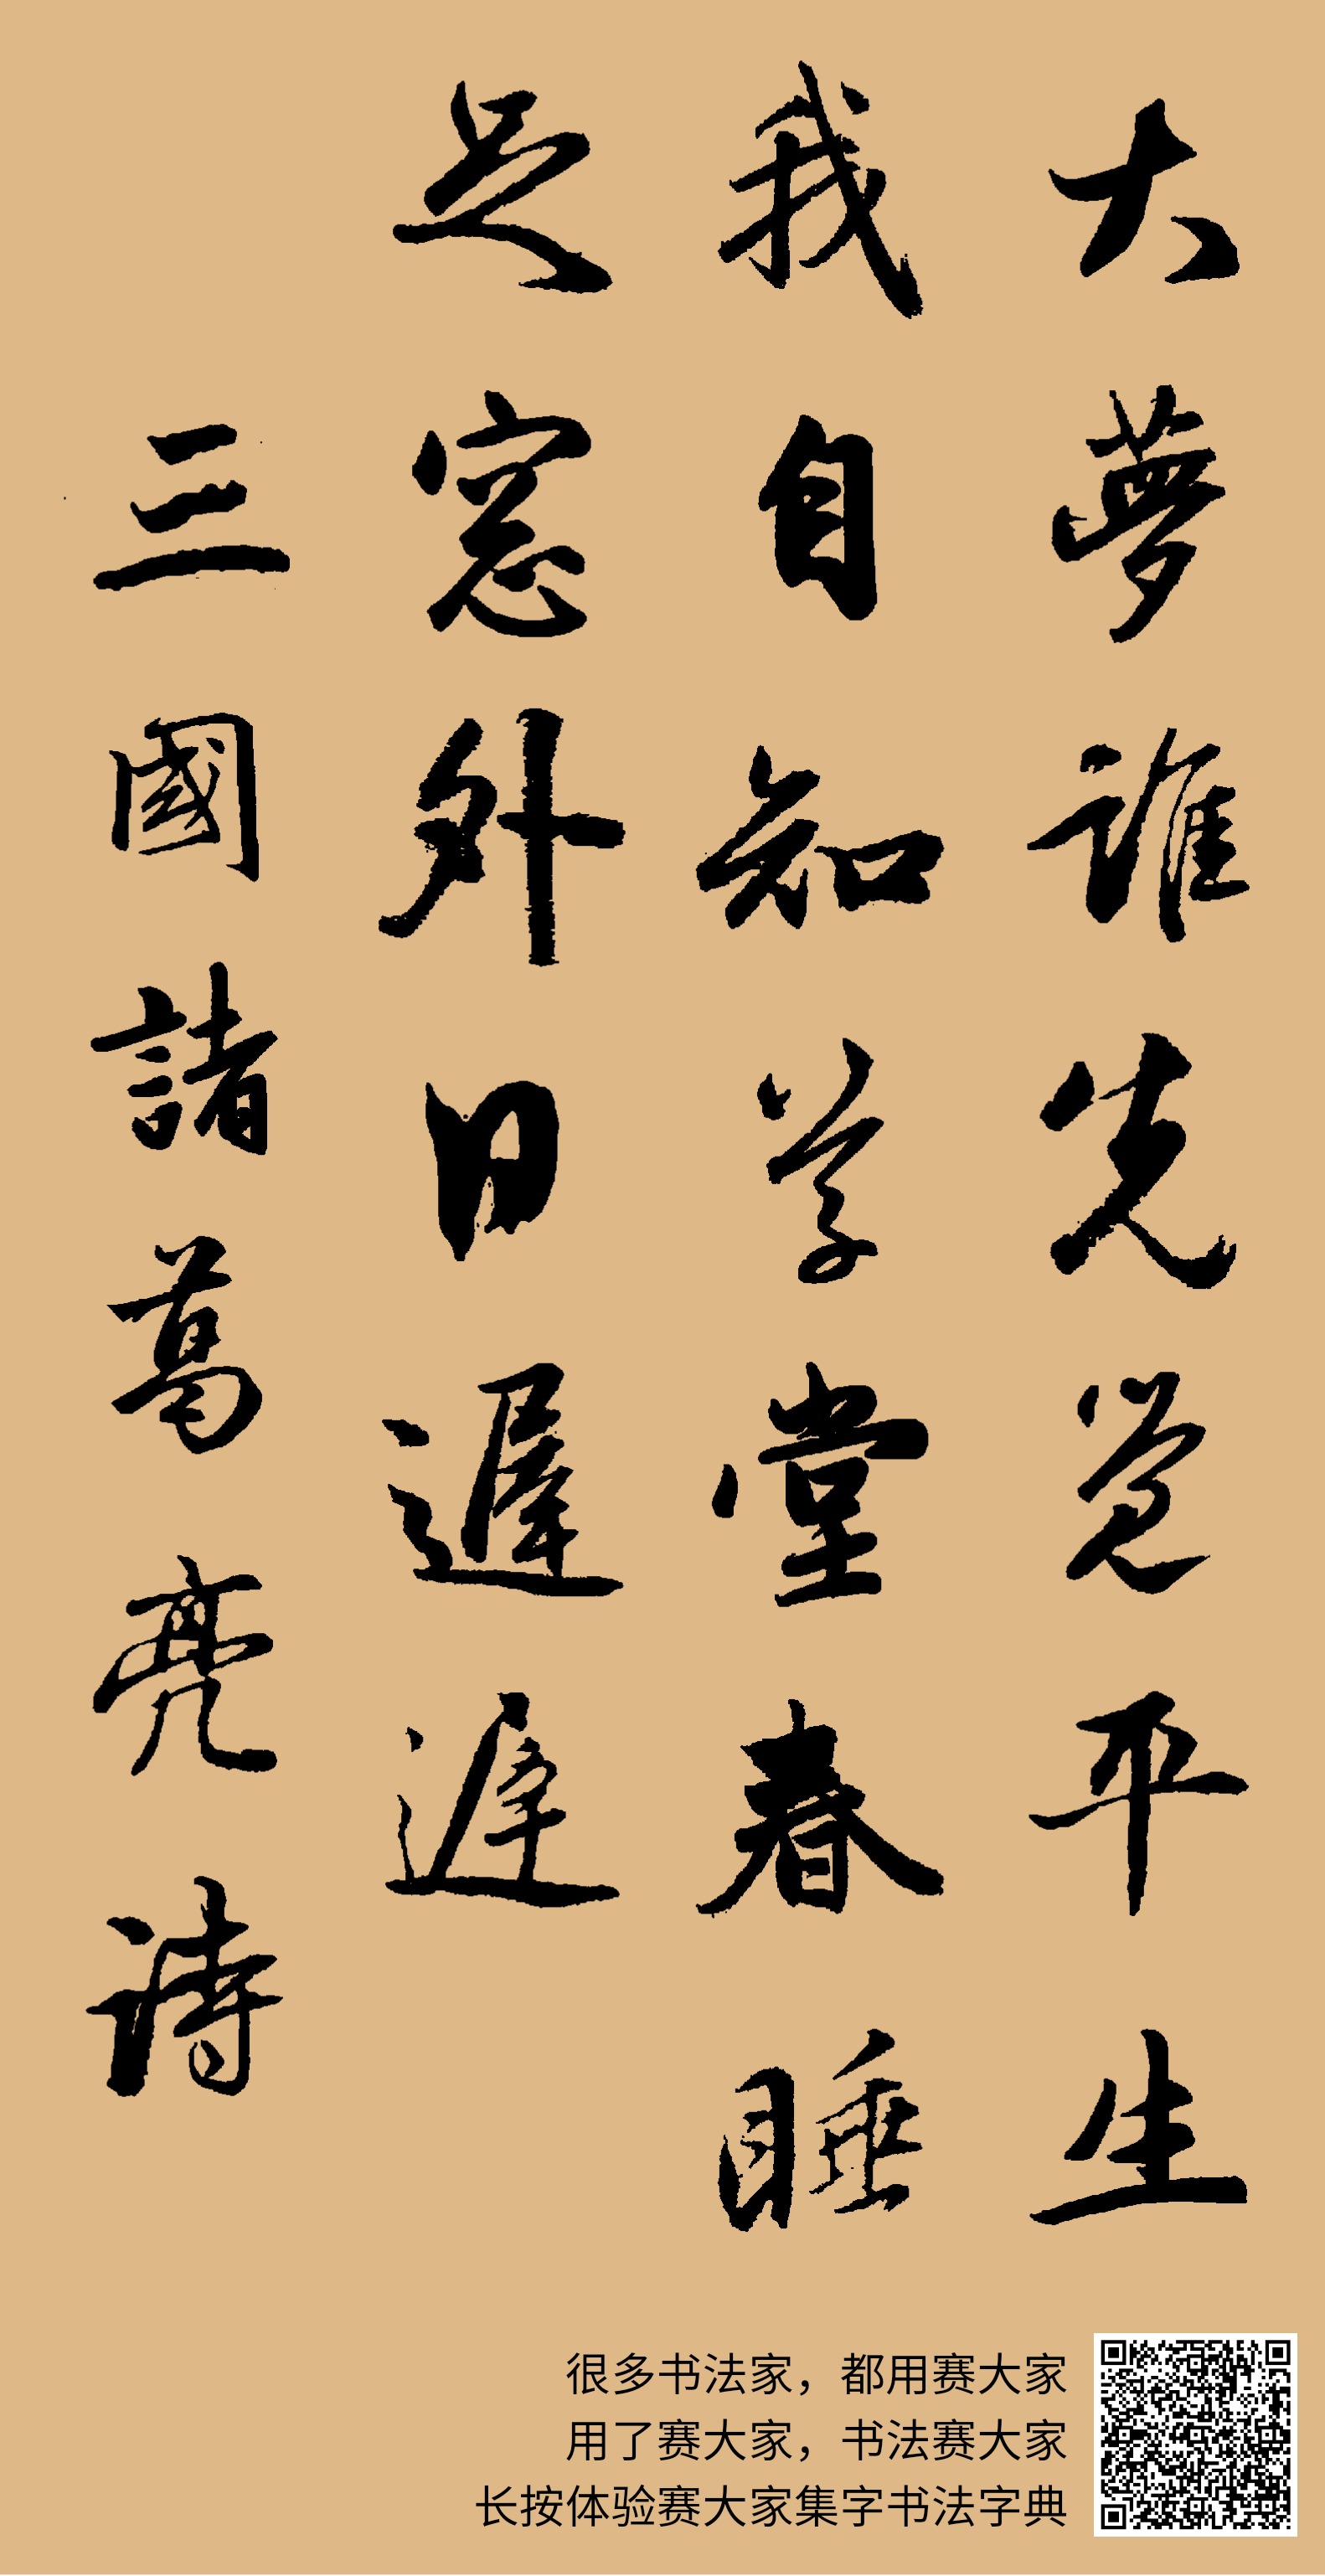 大夢誰先觉平生
我自知学堂春睡
足窓外日遲遲
三國諸葛亮诗
很多书法家，都用赛大家
用了赛大家，书法赛大家
长按体验赛大家集字书法字典